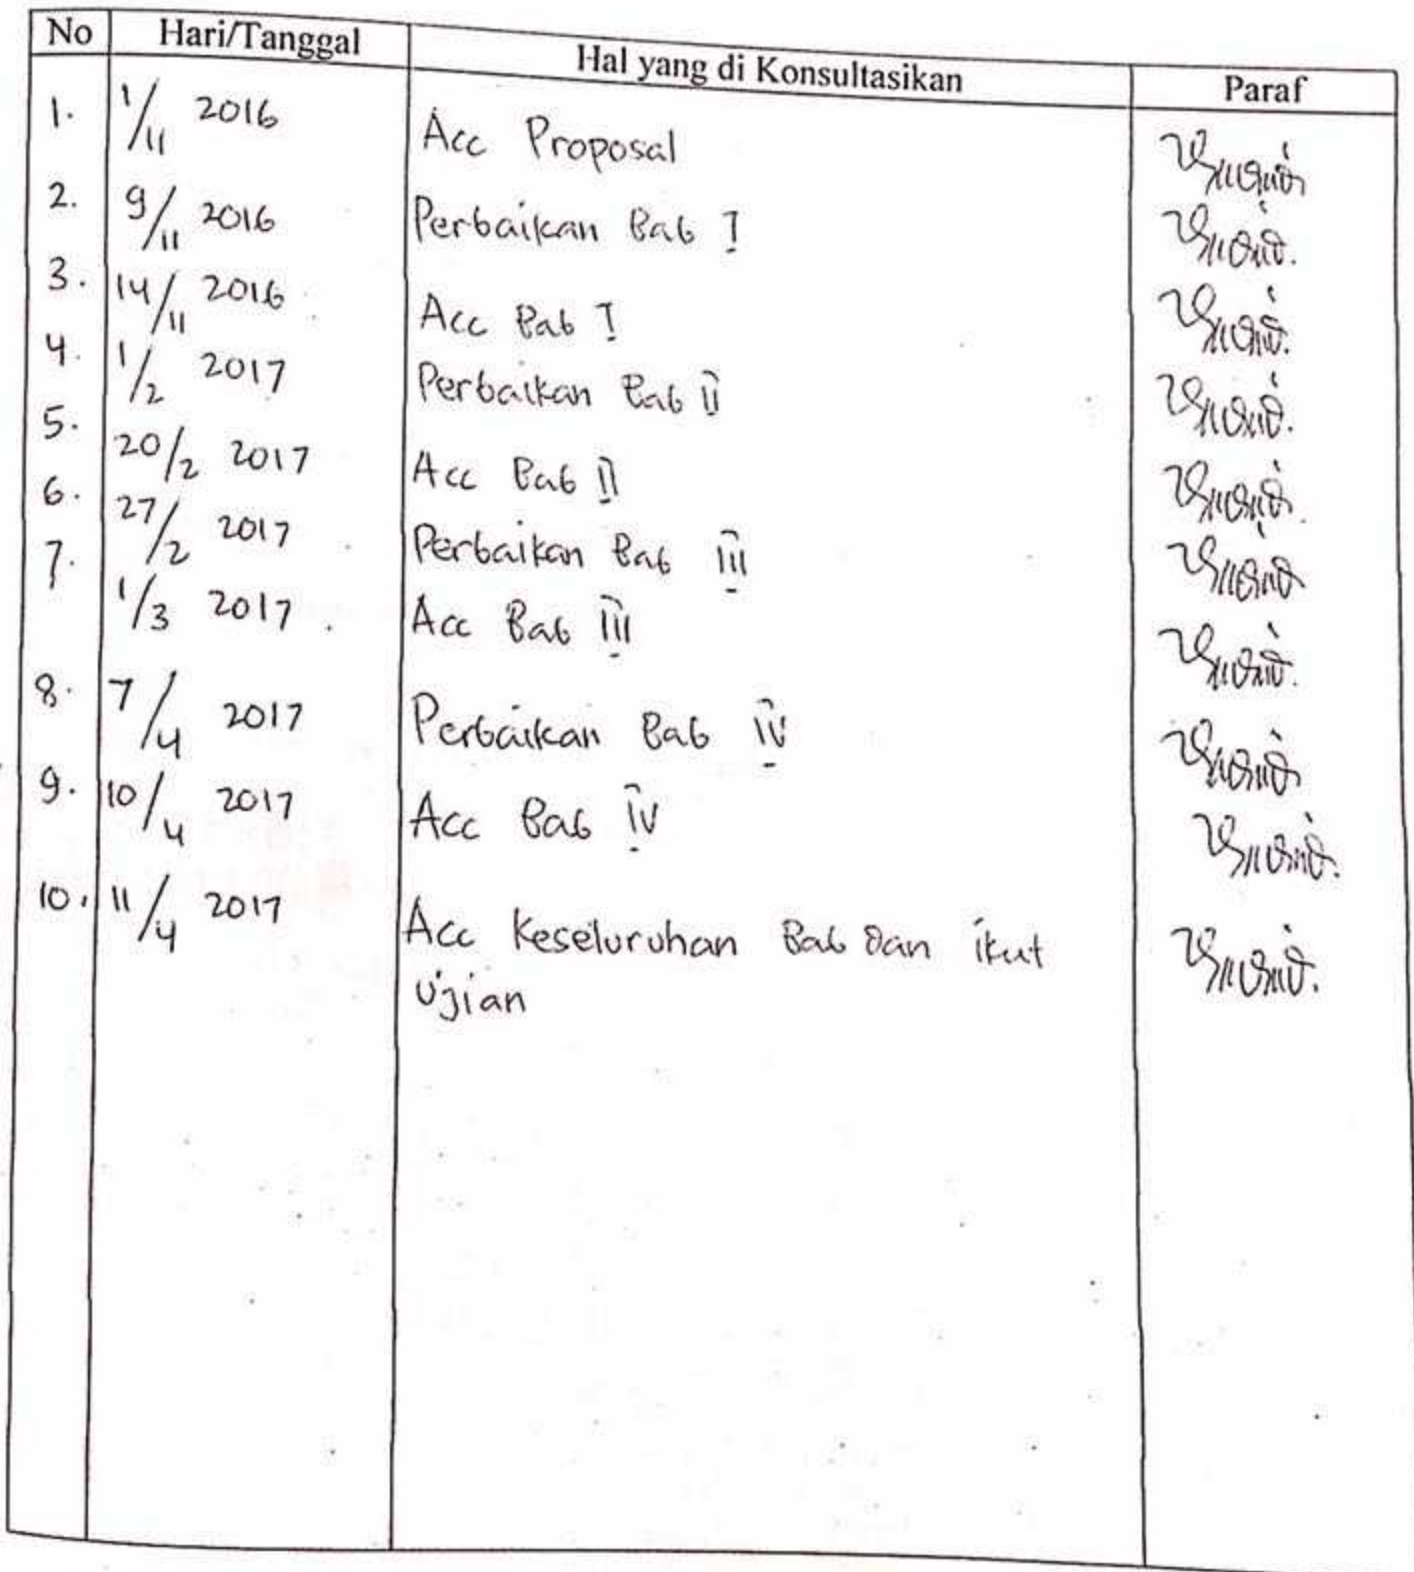 No Hari/Tanggal Hal yang di Konsultasikan Paraf
1. 1/11 2016 Acc Proposal
2. 9/11 2016 Perbaikan Bab I
3. 14/11 2016 Acc Bab I
4. 1/2 2017 Perbaikan Bab II
5. 20/2 2017 Acc Bab II
6. 27/2 2017 Perbaikan Bab III
7. 1/3 2017 Acc Bab III
8. 7/4 2017 Perbaikan Bab IV
9. 10/4 2017 Acc Bab IV
10. 11/4 2017 Acc Keseluruhan Bab Dan ikut
Ujian